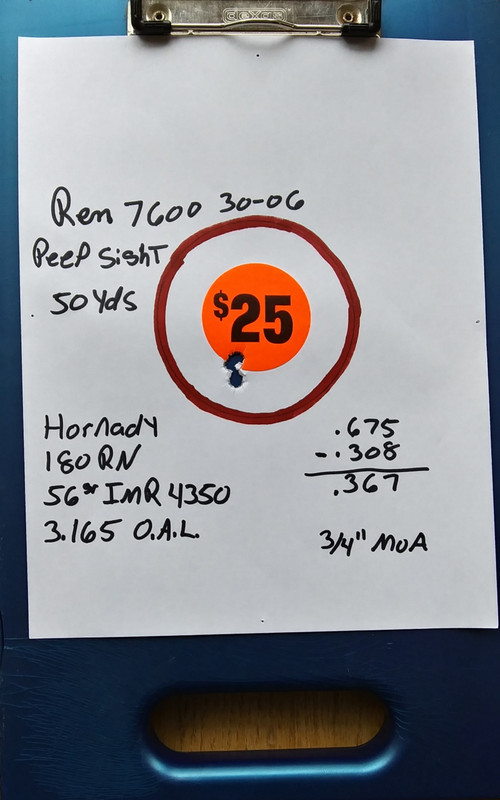 Rem 7600 30-06
Peep Sight
50 Yds
$25
Hornady
180 RN
56gr IMR 4350
3.165 O.A.L.
.675
-.308
.367
3/4" MOA